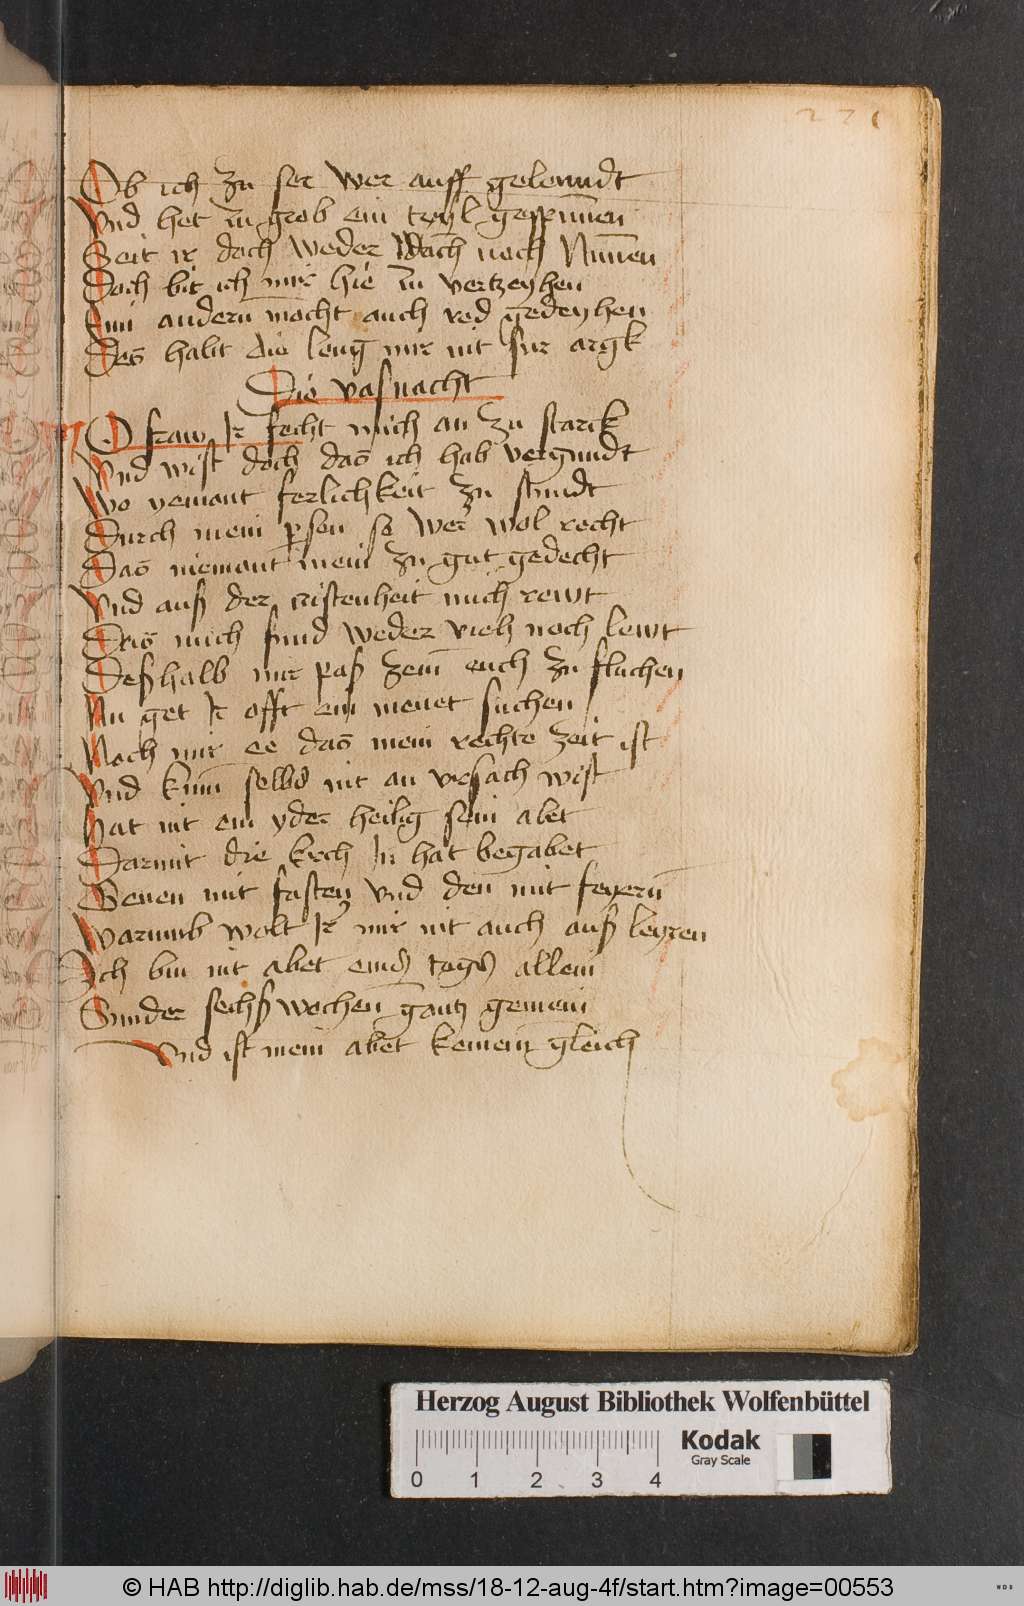 221
Ob ich zu ser wer auff geleundt
Vnd het zu grob ein teyl gespunnen
Seit ir doch weder noch Nunnen
Doch bit ich mir hie zu vertzeyhen
Eim andern mocht auch red gedeyhen
Des halbt die leng mir nit fur argk
Die vasnacht
O fraw Ir fecht mich an zu starck
Vnd wist doch das ich hab vergundt
Wo yemant ferlichkeit zu stundt
Durch mein person so wer wol recht
Das niemant mein zu gut gedecht
Vnd auß der cristenheit mich rewt
Das mich find weder vieh noch lewt
Deßhalb mir paß zem euch zu fluchen
Nu get Ir offt ein menet suchen
Nach mir ee das mein rechte zeit ist
Vnd kum selbs nit an vrsach wist
Hat nit ein yder heilig sein abet
Darmit die kirch In hat begabet
Genen mit fasten vnd den mit feyern
Warumb wolt Ir mir nit auch auß leyren
Ich bin nit abet eins tags allein
Sunder sechß wochen gantz gemein
Vnd ist mein abet keinem gleich
Herzog August Bibliothek Wolfenbüttel
Kodak
Gray Scale
0 1 2 3 4
© HAB http://diglib.hab.de/mss/18-12-aug-4f/start.htm?image=00553